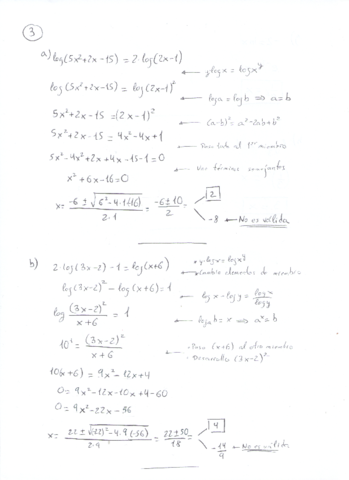 3
a) log(5x²+2x-15) = 2·log(2x-1)
ylogx = logx^y
log(5x²+2x-15) = log(2x-1)²
loga = logb ⟹ a=b
5x²+2x-15 = (2x-1)²
(a-b)² = a²-2ab+b²
5x²+2x-15 = 4x²-4x+1
Paso todo al 1er miembro
5x²-4x²+2x+4x-15-1=0
términos semejantes
x²+6x-16=0
x = (-6 ± √(6²-4·1·(-16)))/(2·1) = (-6±10)/2 =
2
-8 ← No es válida
b) 2 log(3x-2) -1 = log(x+6)
ylogx = logx^y
Cambio elementos de miembro
log(3x-2)² - log(x+6) = 1
log (3x-2)²/(x+6) = 1
log x - log y = log x/y
10¹ = (3x-2)²/(x+6)
- Paso (x+6) al otro miembro
- Desarrollo (3x-2)²
10(x+6) = 9x²-12x+4
0 = 9x²-12x-10x+4-60
0 = 9x²-22x-56
x = (22 ± √((-22)²-4·9·(-56)))/(2·9) = (22±50)/18 =
4
-14/9 ← No es válida